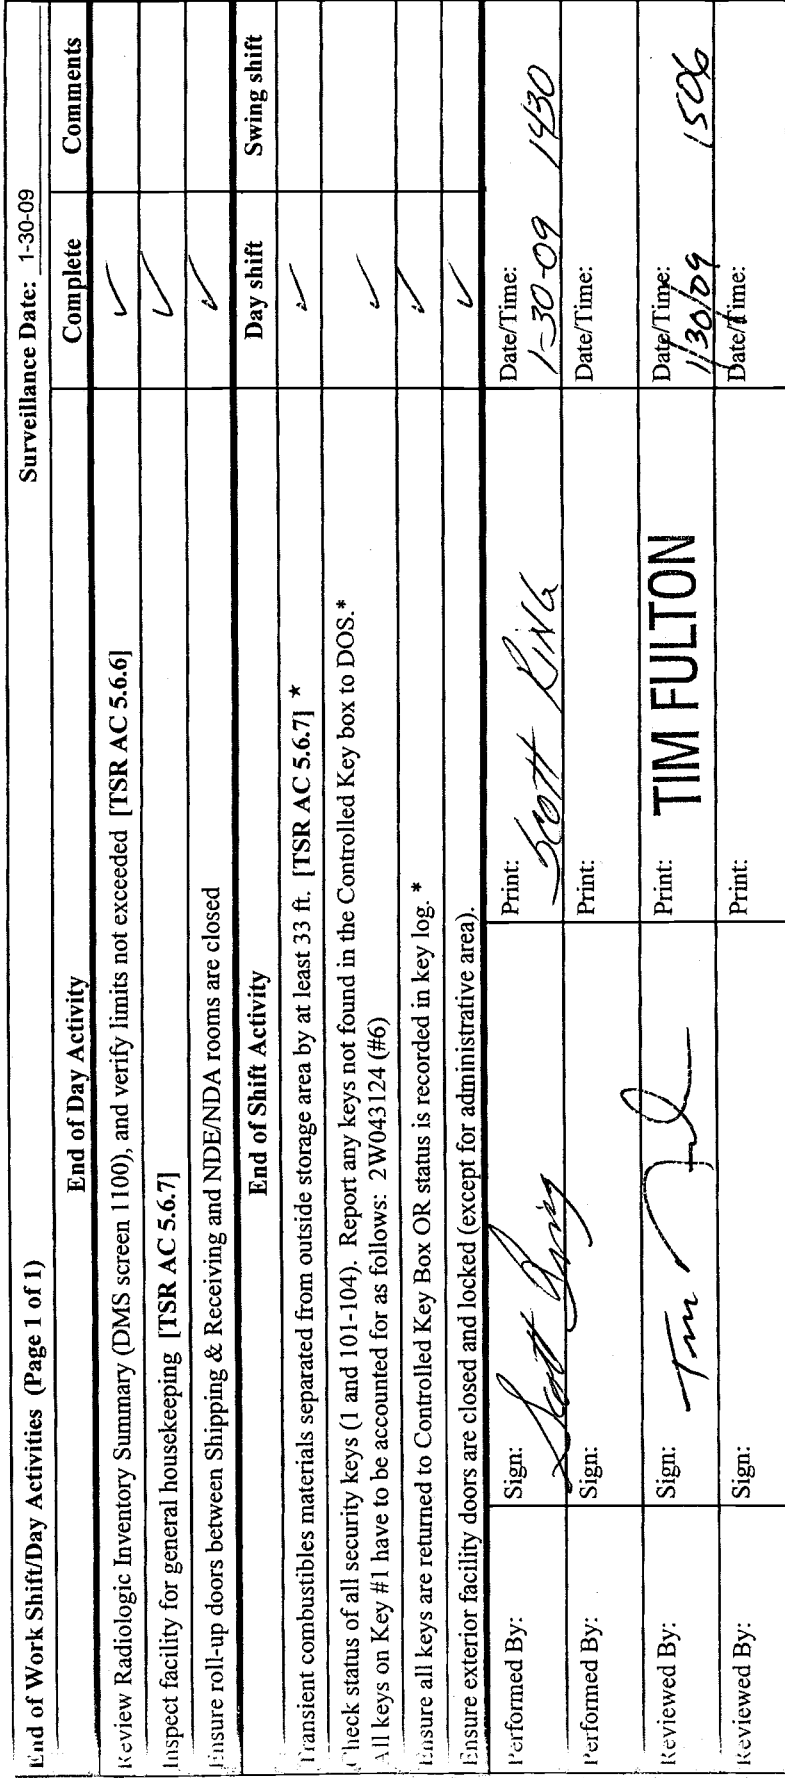 End of Work Shift/Day Activities (Page 1 of 1) Surveillance Date: 1-30-09
End of Day Activity Complete Comments
Review Radiologic Inventory Summary (DMS screen 1100), and verify limits not exceeded [TSR AC 5.6.6] ✓
Inspect facility for general housekeeping [TSR AC 5.6.7] ✓
Ensure roll-up doors between Shipping & Receiving and NDE/NDA rooms are closed ✓
End of Shift Activity Day shift Swing shift
Transient combustibles materials separated from outside storage area by at least 33 ft. [TSR AC 5.6.7] * ✓
Check status of all security keys (1 and 101-104). Report any keys not found in the Controlled Key box to DOS.* ✓
All keys on Key #1 have to be accounted for as follows: 2W043124 (#6)
Ensure all keys are returned to Controlled Key Box OR status is recorded in key log. * ✓
Ensure exterior facility doors are closed and locked (except for administrative area). ✓
Performed By: Sign: Scott King Print: Scott King Date/Time: 1-30-09 1430
Performed By: Sign: Print: Date/Time:
Reviewed By: Sign: Tim Print: TIM FULTON Date/Time: 1/30/09 1506
Reviewed By: Sign: Print: Date/Time: